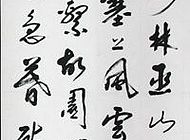 林巫山
塞上風雲
繫故園
急暮砧